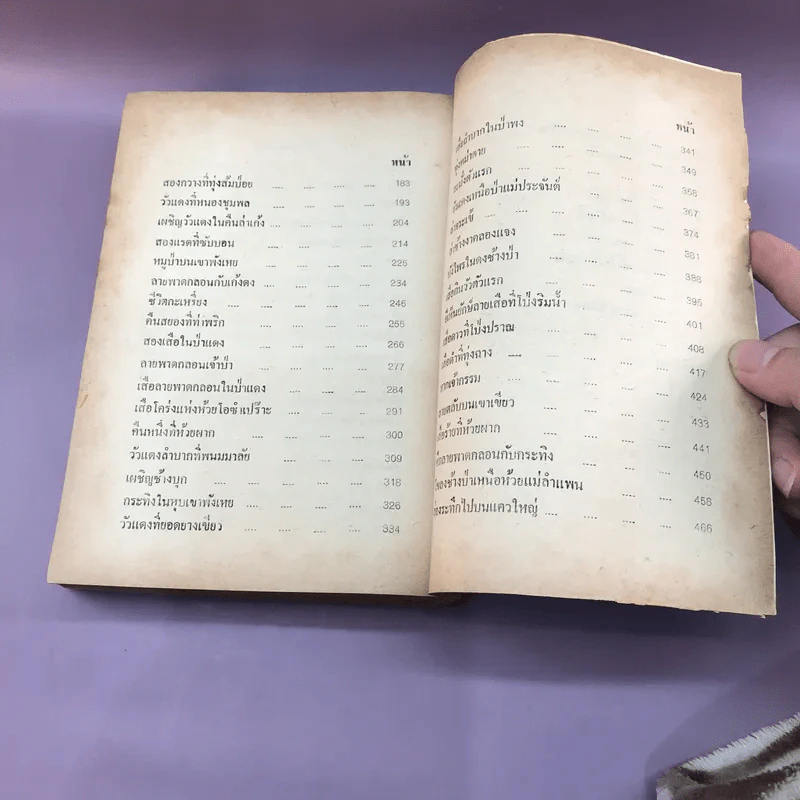 หน้า
สองกวางที่ทุ่งส้มป่อย .... .... .... .... 183
วัวแดงที่หนองชุมพล .... .... .... .... 193
เผชิญวัวแดงในคืนล่าเก้ง .... .... .... 204
สองแรดที่ซับบอน .... .... .... .... 214
หมูป่าบนเขาพังเหย .... .... .... .... 225
ลายพาดกลอนกับเก้งดง .... .... .... 234
ชีวิตกะเหรี่ยง .... .... .... .... 246
คืนสยองที่ท่าพริก .... .... .... .... 255
สองเสือในป่าแดง .... .... .... .... 266
ลายพาดกลอนเจ้าป่า .... .... .... .... 277
เสือลายพาดกลอนในป่าแดง .... .... .... 284
เสือโคร่งแห่งห้วยโอซํเปร๊าะ .... .... .... 291
คืนหนึ่งที่ห้วยผาก .... .... .... .... 300
วัวแดงลำบากที่พนมมาลัย .... .... .... 309
เผชิญช้างบุก .... .... .... .... 318
กระทิงในหุบเขาพังเหย .... .... .... 326
วัวแดงที่ยอดยางเขียว .... .... .... .... 334
หน้า
ลำบากในป่าพง .... .... .... 341
.... .... .... 349
ตัวแรก .... .... .... 358
วัวแดงเหนือป่าแม่ประจันต์ .... .... 367
.... .... .... 374
งาคลองแจง .... .... .... 381
ในดงช้างป่า .... .... .... 388
กินวัวตัวแรก .... .... .... 395
ยักษ์ลายเสือที่โป่งริมน้ำ .... .... 401
เสือดาวที่โป่งปราณ .... .... .... 408
ที่ทุ่งถาง .... .... .... .... 417
เจ้ากรรม .... .... .... .... 424
บนเขาเขียว .... .... .... 433
ร้ายที่ห้วยผาก .... .... .... 441
ลายพาดกลอนกับกระทิง .... .... .... 450
ของช้างป่าเหนือห้วยแม่ลำแพน .... .... 458
ระทึกไปบนแควใหญ่ .... .... .... 466